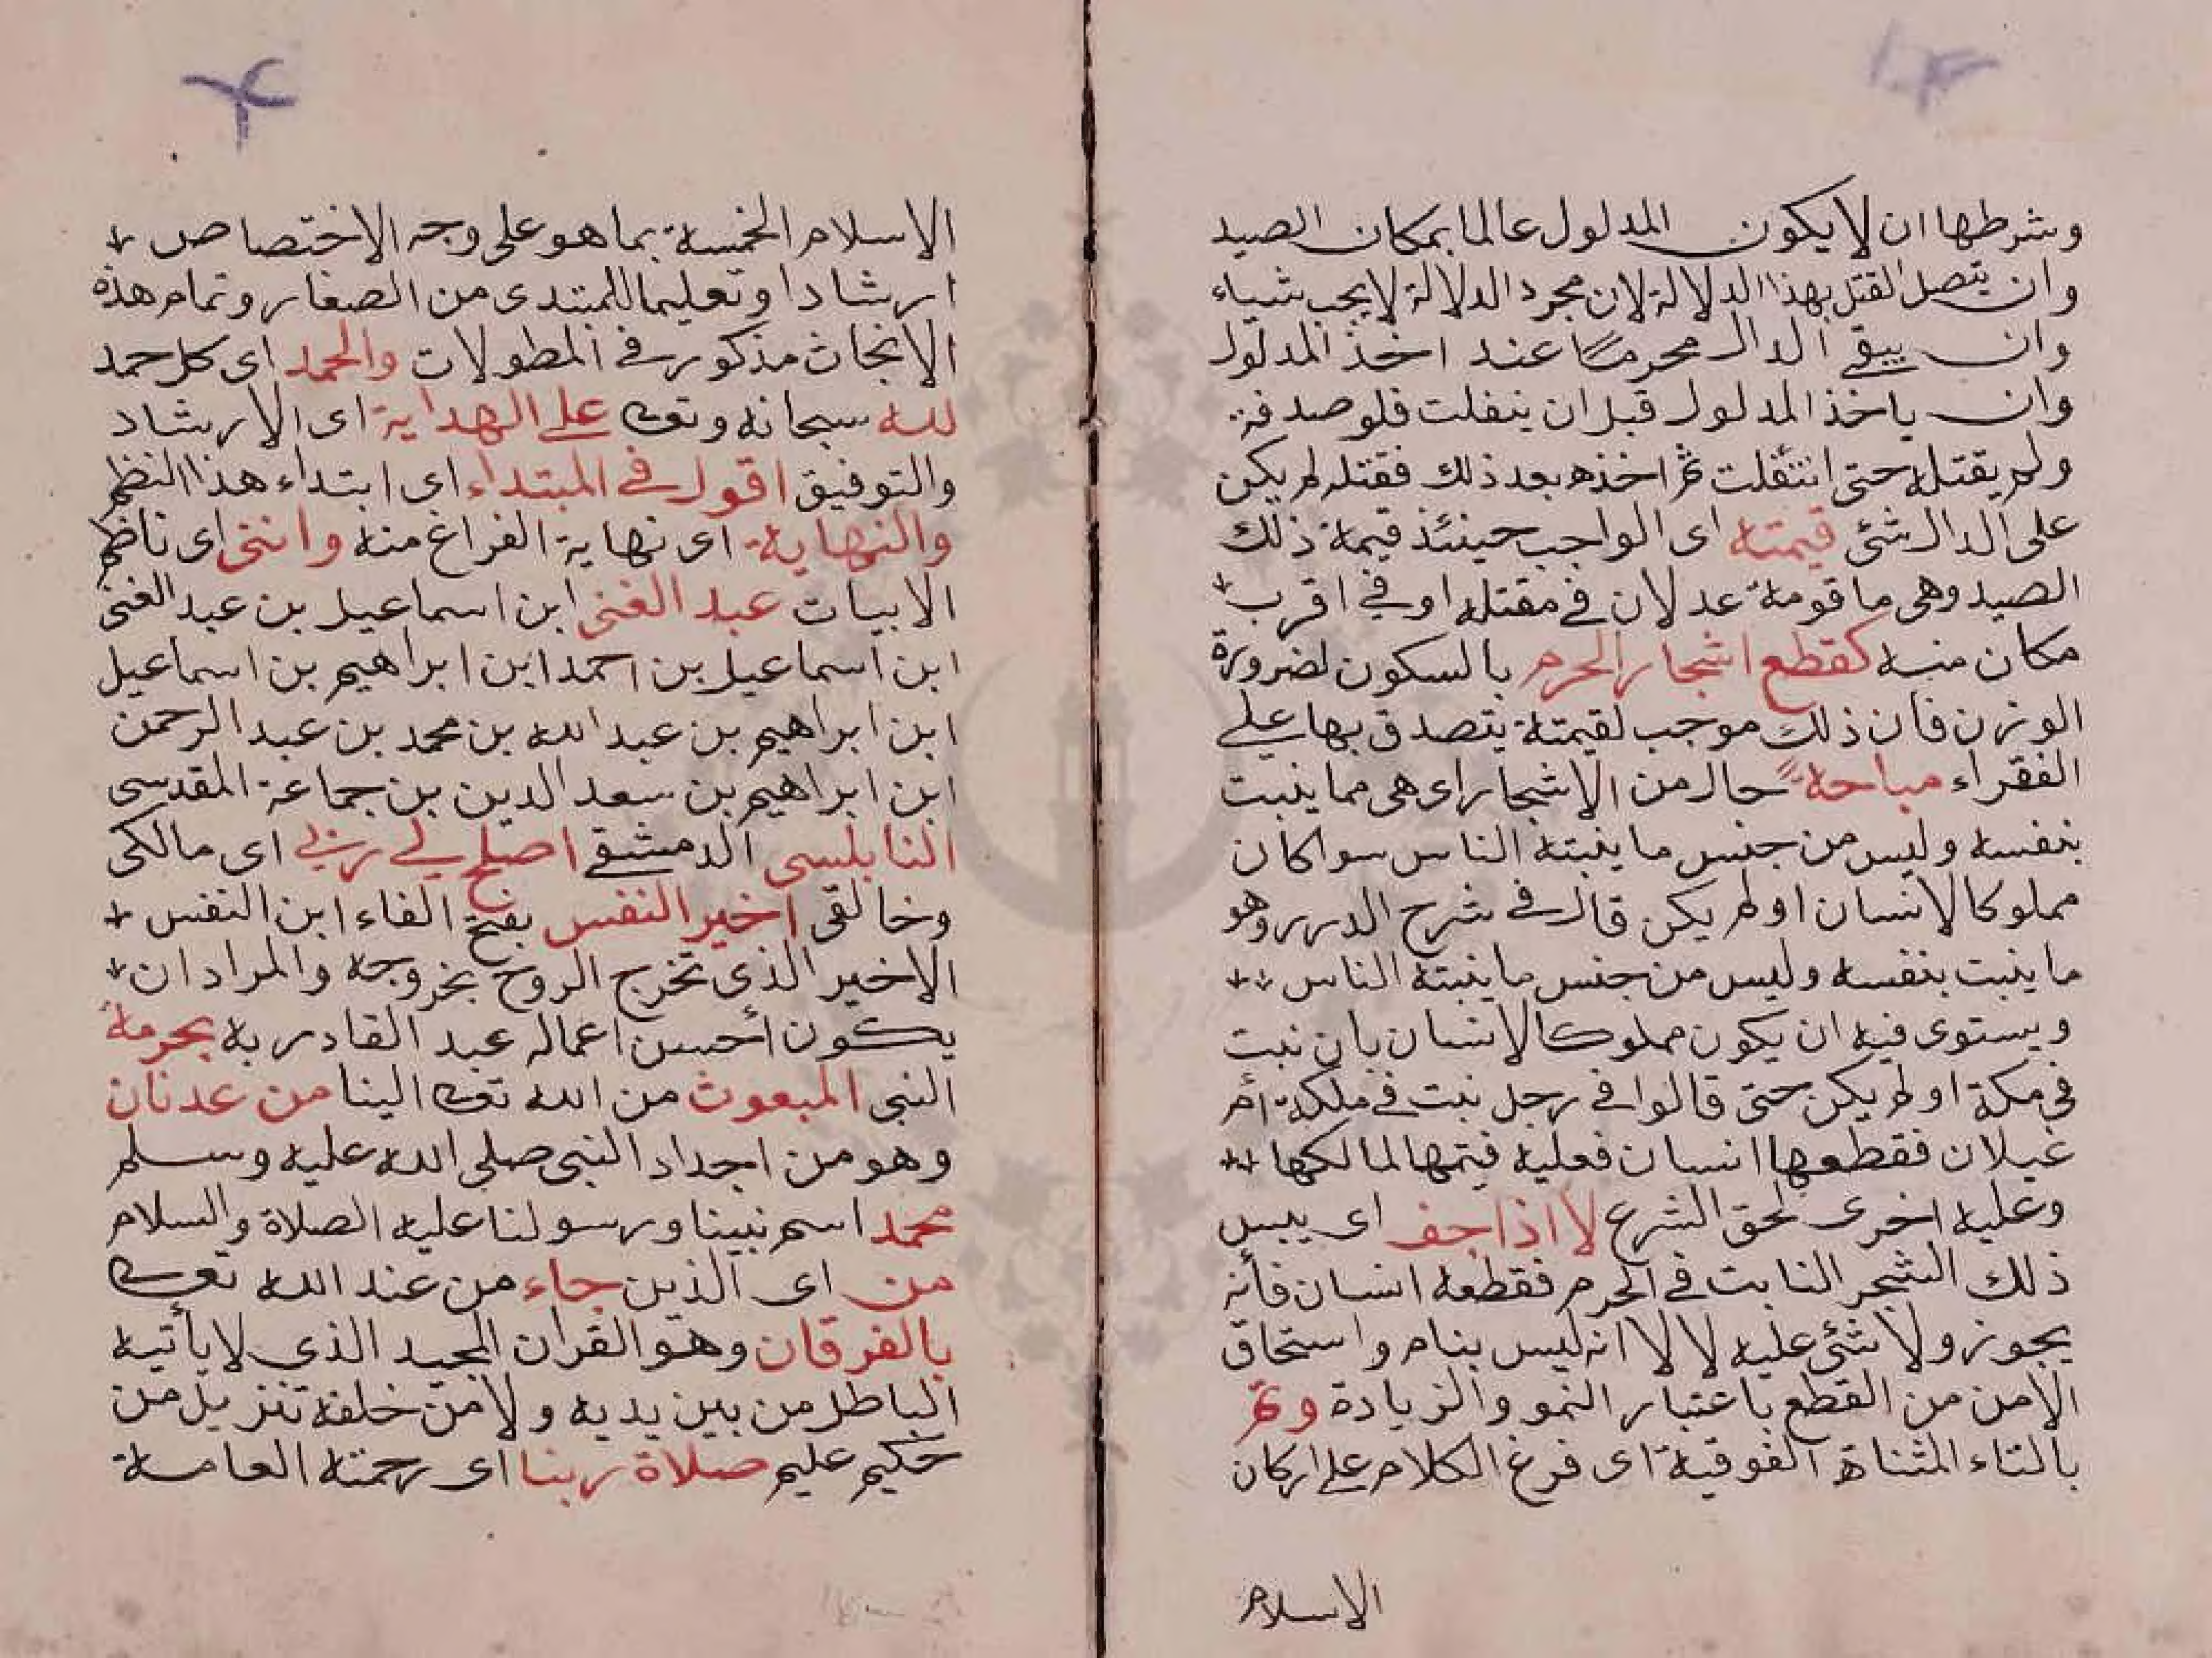 وشرطها ان لا يكون المدلول عالما بمكان الصيد
وان يتصل القتل بهذا الدلالة لان مجرد الدلالة لا يجب شياء
وان يبقى الدال محرما عند اخذ المدلول
وان ياخذ المدلول قبل ان ينفلت فلو صدفة
ولم يقتله حتى انتقلت ثم اخذه بعد ذلك فقتله لم يكن
على الدال شئ قيمته اى الواجب حينئذ قيمة ذلك
الصيد وهى ما قومه عدلان فى مقتله او فى اقرب
مكان منه كقطع اشجار الحرم بالسكون لضرورة
الوزن فان ذلك موجب لقيمته يتصدق بها على
الفقراء مباحةً حال من الاشجار اى هى مما ينبت
بنفسه وليس من جنس ما ينبته الناس سواكان
مملوكا لانسان او لم يكن قال فى شرح الدرر وهو
ما ينبت بنفسه وليس من جنس ما ينبته الناس
ويستوى فيه ان يكون مملوكا لانسان بان نبت
فى مكة او لم يكن حتى قالوا فى رجل نبت فى ملكه ام
غيلان فقطعها انسان فعليه قيمتها لمالكها
وعليه اخرى لحق الشرع لا اذا جف اى يبس
ذلك الشجر النابت فى الحرم فقطعه انسان فأنه
يجوز ولا شئ عليه لا لا انه ليس بنام واستحاق
الامن من القطع باعتبار النمو والزيادة وتم
بالتاء المثناة الفوقية اى فرغ الكلام على اركان
الاسلام
الاسلام الخمسة بما هو على وجه الاختصاص
ارشادا وتعليما للمبتدى من الصغار وتمام هذه
الابحاث مذكور فى المطولات والحمد اى كل حمد
لله سبحانه وتعالى على الهداية اى الارشاد
والتوفيق اقول فى المبتداء اى ابتداء هذا النظم
والنهاية اى نهاية الفراغ منه واننى اى ناظم
الابيات عبد الغنى ابن اسماعيل بن عبد الغنى
ابن اسماعيل بن احمد ابن ابراهيم بن اسماعيل
ابن ابراهيم بن عبد الله بن محمد بن عبد الرحمن
ابن ابراهيم بن سعد الدين بن جماعة المقدسى
النابلسى الدمشقى اصلح لى ربى اى مالكى
وخالقى اخير النفس بفتح الفاء ابن النفس
الاخير الذى تخرج الروح بخروجه والمراد ان
يكون أحسن اعماله عبد القادر به بحرمة
النبى المبعوث من الله تعالى الينا من عدنان
وهو من اجداد النبى صلى الله عليه وسلم
محمد اسم نبينا ورسولنا عليه الصلاة والسلام
من اى الذين جاء من عند الله تعالى
بالفرقان وهو القران المجيد الذى لا يأتيه
الباطل من بين يديه ولا من خلفه تنزيل من
حكيم عليم صلاة ربنا اى رحمته العامة